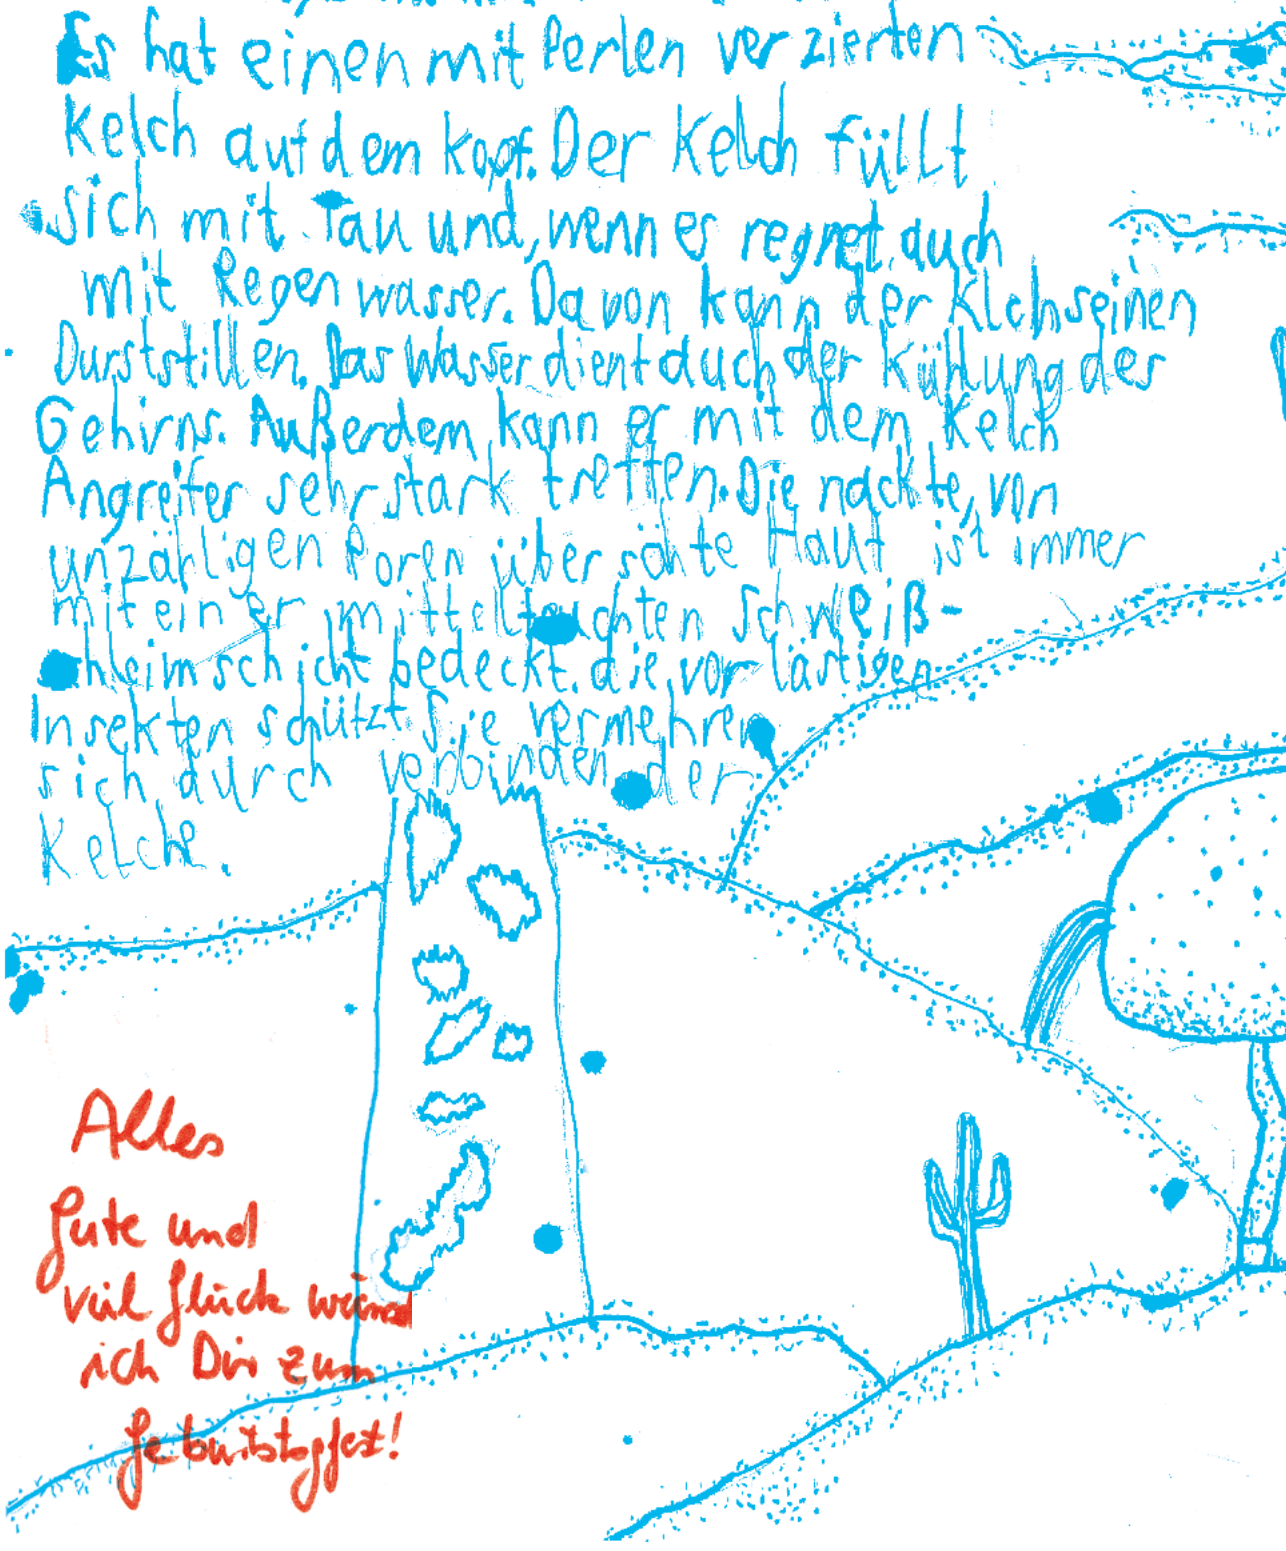 Es hat einen mit Perlen verzierten
Kelch auf dem kopf. Der Kelch füllt
sich mit Tau und, wenn es regnet, auch
mit Regenwasser. Davon kann der Klch seinen
Durst stillen. Das Wasser dient auch der Kühlung des
Gehirns. Außerdem kann er mit dem Kelch
Angreifer sehr stark treffen. Die nackte, von
unzähligen Poren über sähte Haut ist immer
mit ein er mittelfeuchten Schweiß-
schleimschicht bedeckt. die, vor lästigen
Insekten schützt. Sie vermehren
sich durch verbinden der
Kelche.
Alles
Gute und
viel Glück wünsch
ich Dir zum
Geburtstagfest!